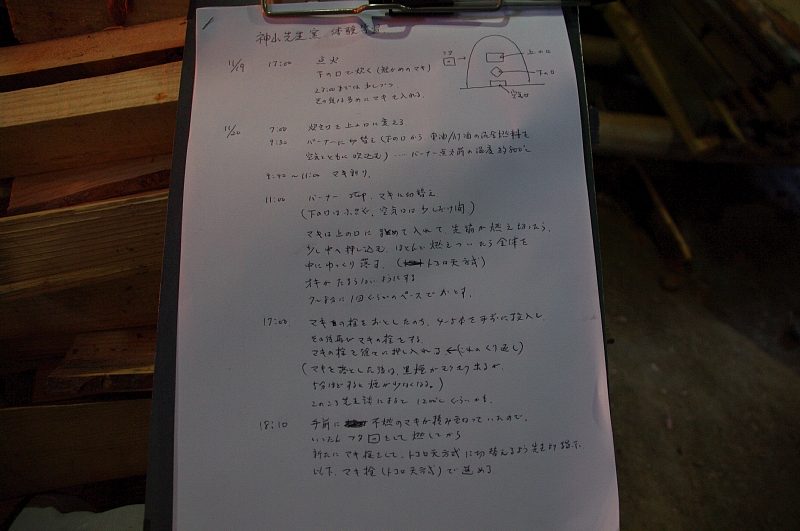 神山先生窯 体験
11/19 17:00 点火
下の口で炊く(短かめのマキ)
23:00までは少しづつ
その後は多めにマキを入れる。
フタ
上の口
下の口
空気口
11/20 7:00 焚き口を上の口に変える
9:30 バーナーに切替え(下の口から 重油/灯油の混合燃料を
空気とともに吹込む)…バーナー点火前の温度 約900℃
9:40~11:00 マキ割り
11:00 バーナー 停止、マキに切替え
(下の口はふさぐ、空気口は少しだけ開)
マキは上の口に詰めて入れて、先端が燃え切ったら、
少し中へ押し込む。ほとんど燃えついたら全体を
中にゆっくり落す。(トコロ天方式)
オキがたまらないようにする
7~8分に1回くらいのペースでおとす。
17:00 マキの栓をおとしたのち、4~5本を手前に投入し
その後再びマキの栓をする。
マキの栓を徐々に押し入れる ←(これのくり返し)
(マキを落とした後は、黒煙がもうもう出るが
5分ほどすると煙が少なくなる。)
このころ先生談によると 1200℃くらいかも。
18:10 手前に 不燃のマキが積み重なっていたので、
いったん フタ をして 燃してから
新たにマキ栓をして、トコロ天方式に切替えるよう先生より指示
以下、マキ栓(トコロ天方式)で進める。